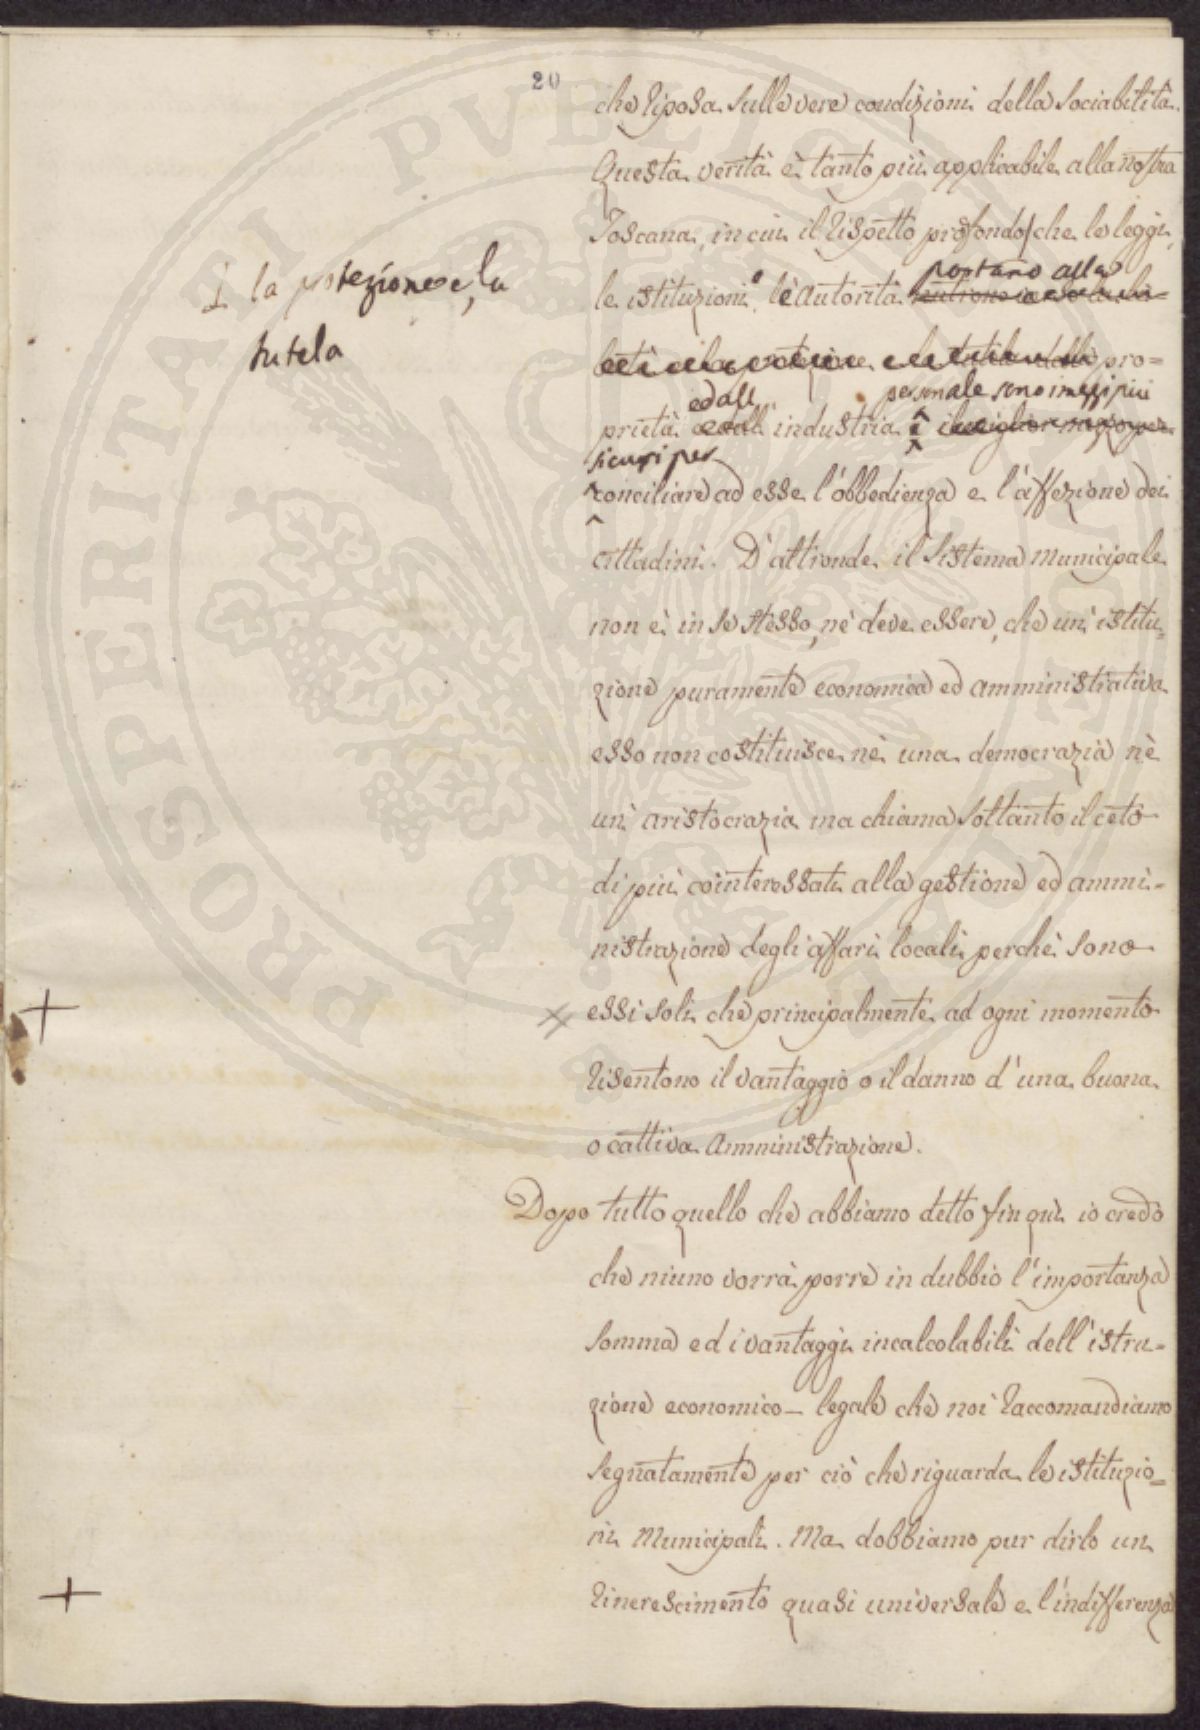 20
che riposa sulle vere condizioni della sociabilità.
Questa verità è tanto più applicabile alla nostra
Toscana, in cui il rispetto profondo che le leggi,
1 la protezione e, la
tutela
portano alla
le istituzioni, le autorità
pro=
ed all' personale sono i mezzi più
prietà ed all' industria è il miglior mezzo per
sicuri per
conciliare ad esse l'obbedienza e l'affezione dei
cittadini. D'altronde il sistema municipale
non è in se stesso, nè deve essere, che un'istitu=
zione puramente economica ed amministrativa
esso non costituisce nè una democrazia nè
un'aristocrazia ma chiama soltanto il ceto
di più cointeressati alla gestione ed ammi=
nistrazione degli affari locali perchè sono
+ essi soli che principalmente ad ogni momento
risentono il vantaggio o il danno d'una buona
o cattiva amministrazione.
Dopo tutto quello che abbiamo detto fin qui io credo
che niuno vorrà porre in dubbio l'importanza
somma ed i vantaggi incalcolabili dell'istru=
zione economico-legale che noi raccomandiamo
segnatamente per ciò che riguarda le istituzio=
ni Municipali. Ma dobbiamo pur dirlo un
+ rincrescimento quasi universale e l'indifferenza
PROSPERITATI PUBLICAE AUGENDAE